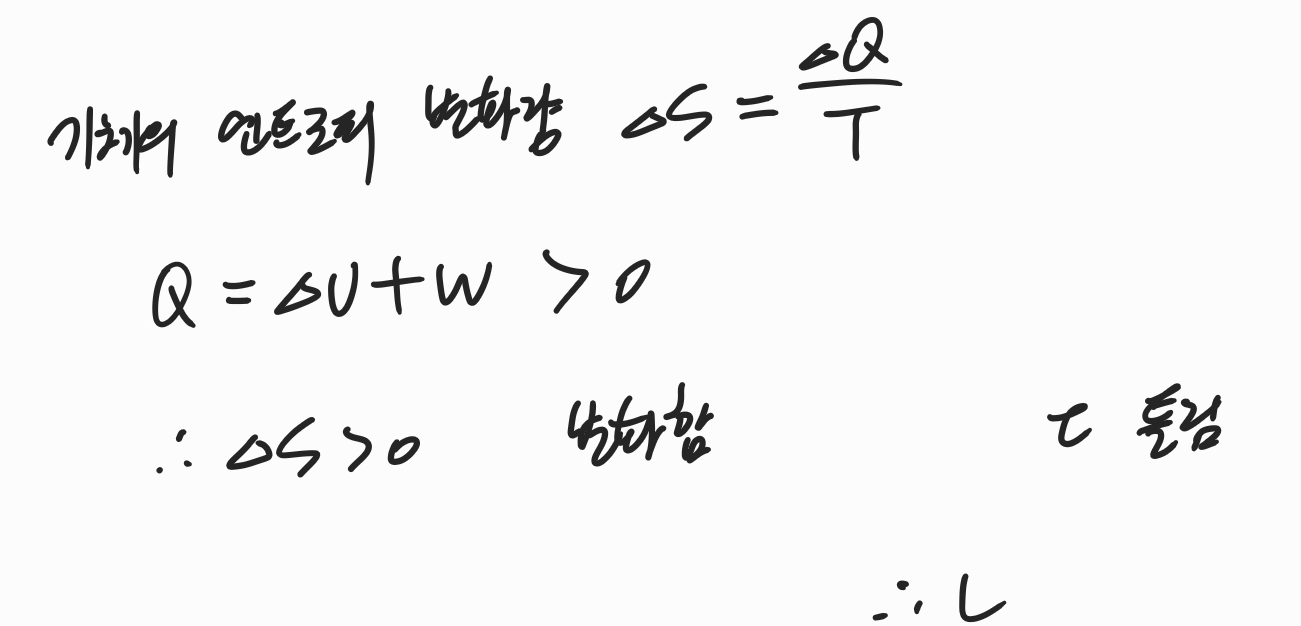 기체의 엔트로피 변화량 ΔS = ΔQ/T
Q = ΔU + W > 0
∴ ΔS > 0 변화함 ㄷ 틀림
∴ ㄴ